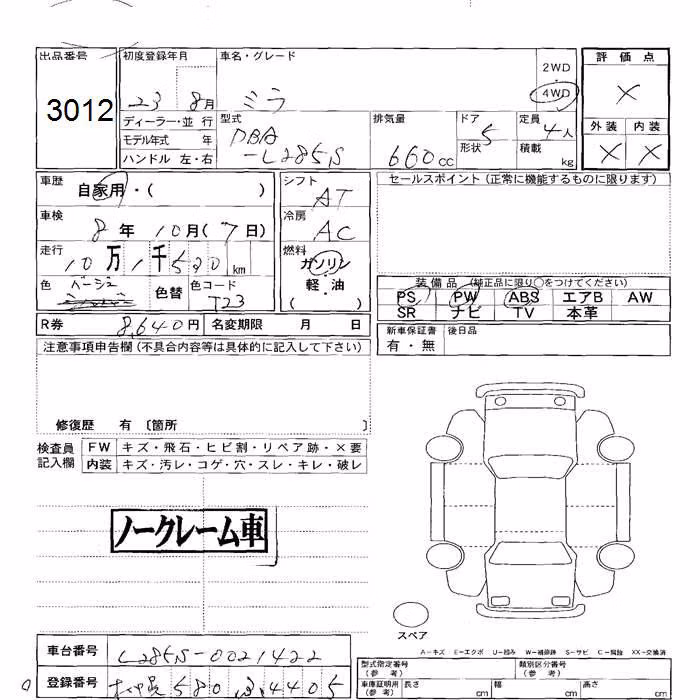 出品番号
3012
初度登録年月
23 8月
ディーラー・並行
モデル年式 年
ハンドル 左・右
車名・グレード
ミラ
2WD
4WD
型式
DBA
-L285S
排気量
660cc
ドア
5
形状
定員
4人
積載
kg
評価点
X
外装 内装
X X
車歴
自家用・( )
車検
8年 10月(7日)
走行
10万1千520km
色
ベージュ
色替
色コード
T23
シフト
AT
冷房
AC
燃料
ガソリン
軽・油
( )
R券
8,640円
名変期限 月 日
セールスポイント(正常に機能するものに限ります)
装備品(純正品に限り○をつけてください)
PS PW ABS エアB AW
SR ナビ TV 本革
新車保証書
有・無
後日品
注意事項申告欄(不具合内容等は具体的に記入して下さい)
修復歴 有〔箇所 〕
検査員
記入欄
FW キズ・飛石・ヒビ割・リペア跡・×要
内装 キズ・汚レ・コゲ・穴・スレ・キレ・破レ
ノークレーム車
スペア
A-キズ E-エクボ U-凹み W-補修跡 S-サビ C-腐蝕 XX-交換済
車台番号
L285S-0021422
登録番号
580 34405
型式指定番号
(参考)
類別区分番号
(参考)
車庫証明用
(参考)
長さ cm
幅 cm
高さ cm